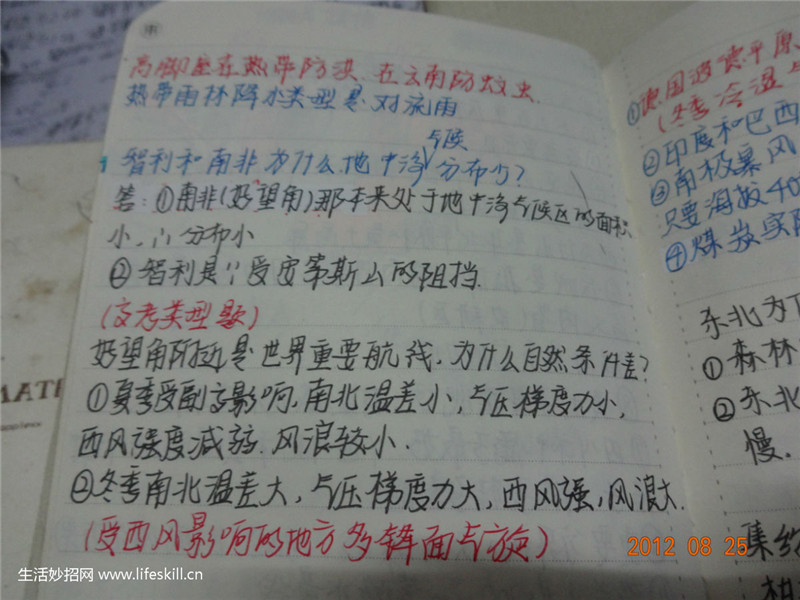 高脚屋在热带防洪.在云南防蚊虫.
热带雨林降水类型是对流雨
气候
智利和南非为什么地中海分布少?
答:①南非(好望角)那本来处于地中海气候区的面积
小,∴分布小
②智利是∵受安第斯山的阻挡.
(高考类型题)
好望角附近是世界重要航线,为什么自然条件差?
①夏季受副高影响,南北温差小,气压梯度力小,
西风强度减弱.风浪较小.
②冬季南北温差大,气压梯度力大,西风强,风浪大.
(受西风影响的地方多锋面气旋)
①德国波德平原
(冬季冷湿
②印度和巴西
③南极暴风
只要海拔40
④煤炭实际
东北为
①森林
②东北
慢.
集约
2012 08 25
生活妙招网 www.lifeskill.cn